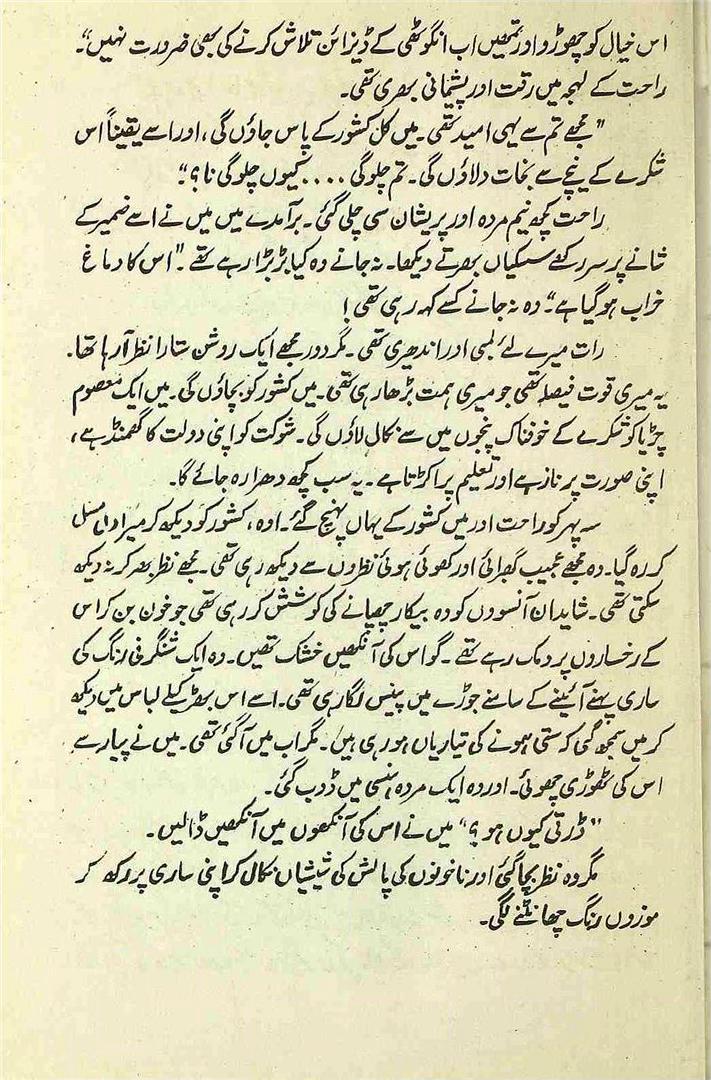 اس خیال کو چھوڑو اور تمھیں اب انگوٹھی کے ڈیزائن تلاش کرنے کی بھی ضرورت نہیں"۔
راحت کے لہجہ میں رقت اور پشیمانی بھری تھی۔
"مجھے تم سے یہی امید تھی۔ میں کل کشور کے پاس جاؤں گی، اور اسے یقیناً اس
شکرے کے پنجے سے نجات دلاؤں گی۔ تم چلو گی .... کیوں چلو گی نا؟"۔
راحت کچھ نیم مردہ اور پریشان سی چلی گئی۔ برآمدے میں میں نے اسے ضمیر کے
شانے پر سر رکھے سسکیاں بھرتے دیکھا۔ نہ جانے وہ کیا بڑبڑا رہے تھے۔ "اس کا دماغ
خراب ہو گیا ہے"۔ وہ نہ جانے کسے کہہ رہی تھی!
رات میرے لئے لمبی اور اندھیری تھی۔ مگر دور مجھے ایک روشن ستارا نظر آ رہا تھا۔
یہ میری قوت فیصلہ تھی جو میری ہمت بڑھا رہی تھی۔ میں کشور کو بچاؤں گی۔ میں ایک معصوم
چڑیا کو شکرے کے خوفناک پنجوں میں سے نکال لاؤں گی۔ شوکت کو اپنی دولت کا گھمنڈ ہے،
اپنی صورت پر ناز ہے اور تعلیم پر اکڑتا ہے۔ یہ سب کچھ دھرا رہ جائے گا۔
سہ پہر کو راحت اور میں کشور کے یہاں پہنچ گئے۔ اوہ، کشور کو دیکھ کر میرا دل مسل
کر رہ گیا۔ وہ مجھے عجیب گھبرائی اور کھوئی ہوئی نظروں سے دیکھ رہی تھی۔ مجھے نظر بھر کر نہ دیکھ
سکتی تھی۔ شاید ان آنسوؤں کو وہ بیکار چھپانے کی کوشش کر رہی تھی جو خون بن کر اس
کے رخساروں پر دمک رہے تھے۔ گو اس کی آنکھیں خشک تھیں۔ وہ ایک شنگرفی رنگ کی
ساری پہنے آئینے کے سامنے جوڑے میں پنیں لگا رہی تھی۔ اسے اس بھڑکیلے لباس میں دیکھ
کر میں سمجھ گئی کہ ستی ہونے کی تیاریاں ہو رہی ہیں۔ مگر اب میں آ گئی تھی۔ میں نے پیار سے
اس کی ٹھوڑی چھوئی۔ اور وہ ایک مردہ ہنسی میں ڈوب گئی۔
"ڈرتی کیوں ہو؟" میں نے اس کی آنکھوں میں آنکھیں ڈالیں۔
مگر وہ نظر بچا گئی اور ناخونوں کی پالش کی شیشیاں نکال کر اپنی ساری پر رکھ کر
موزوں رنگ چھانٹنے لگی۔